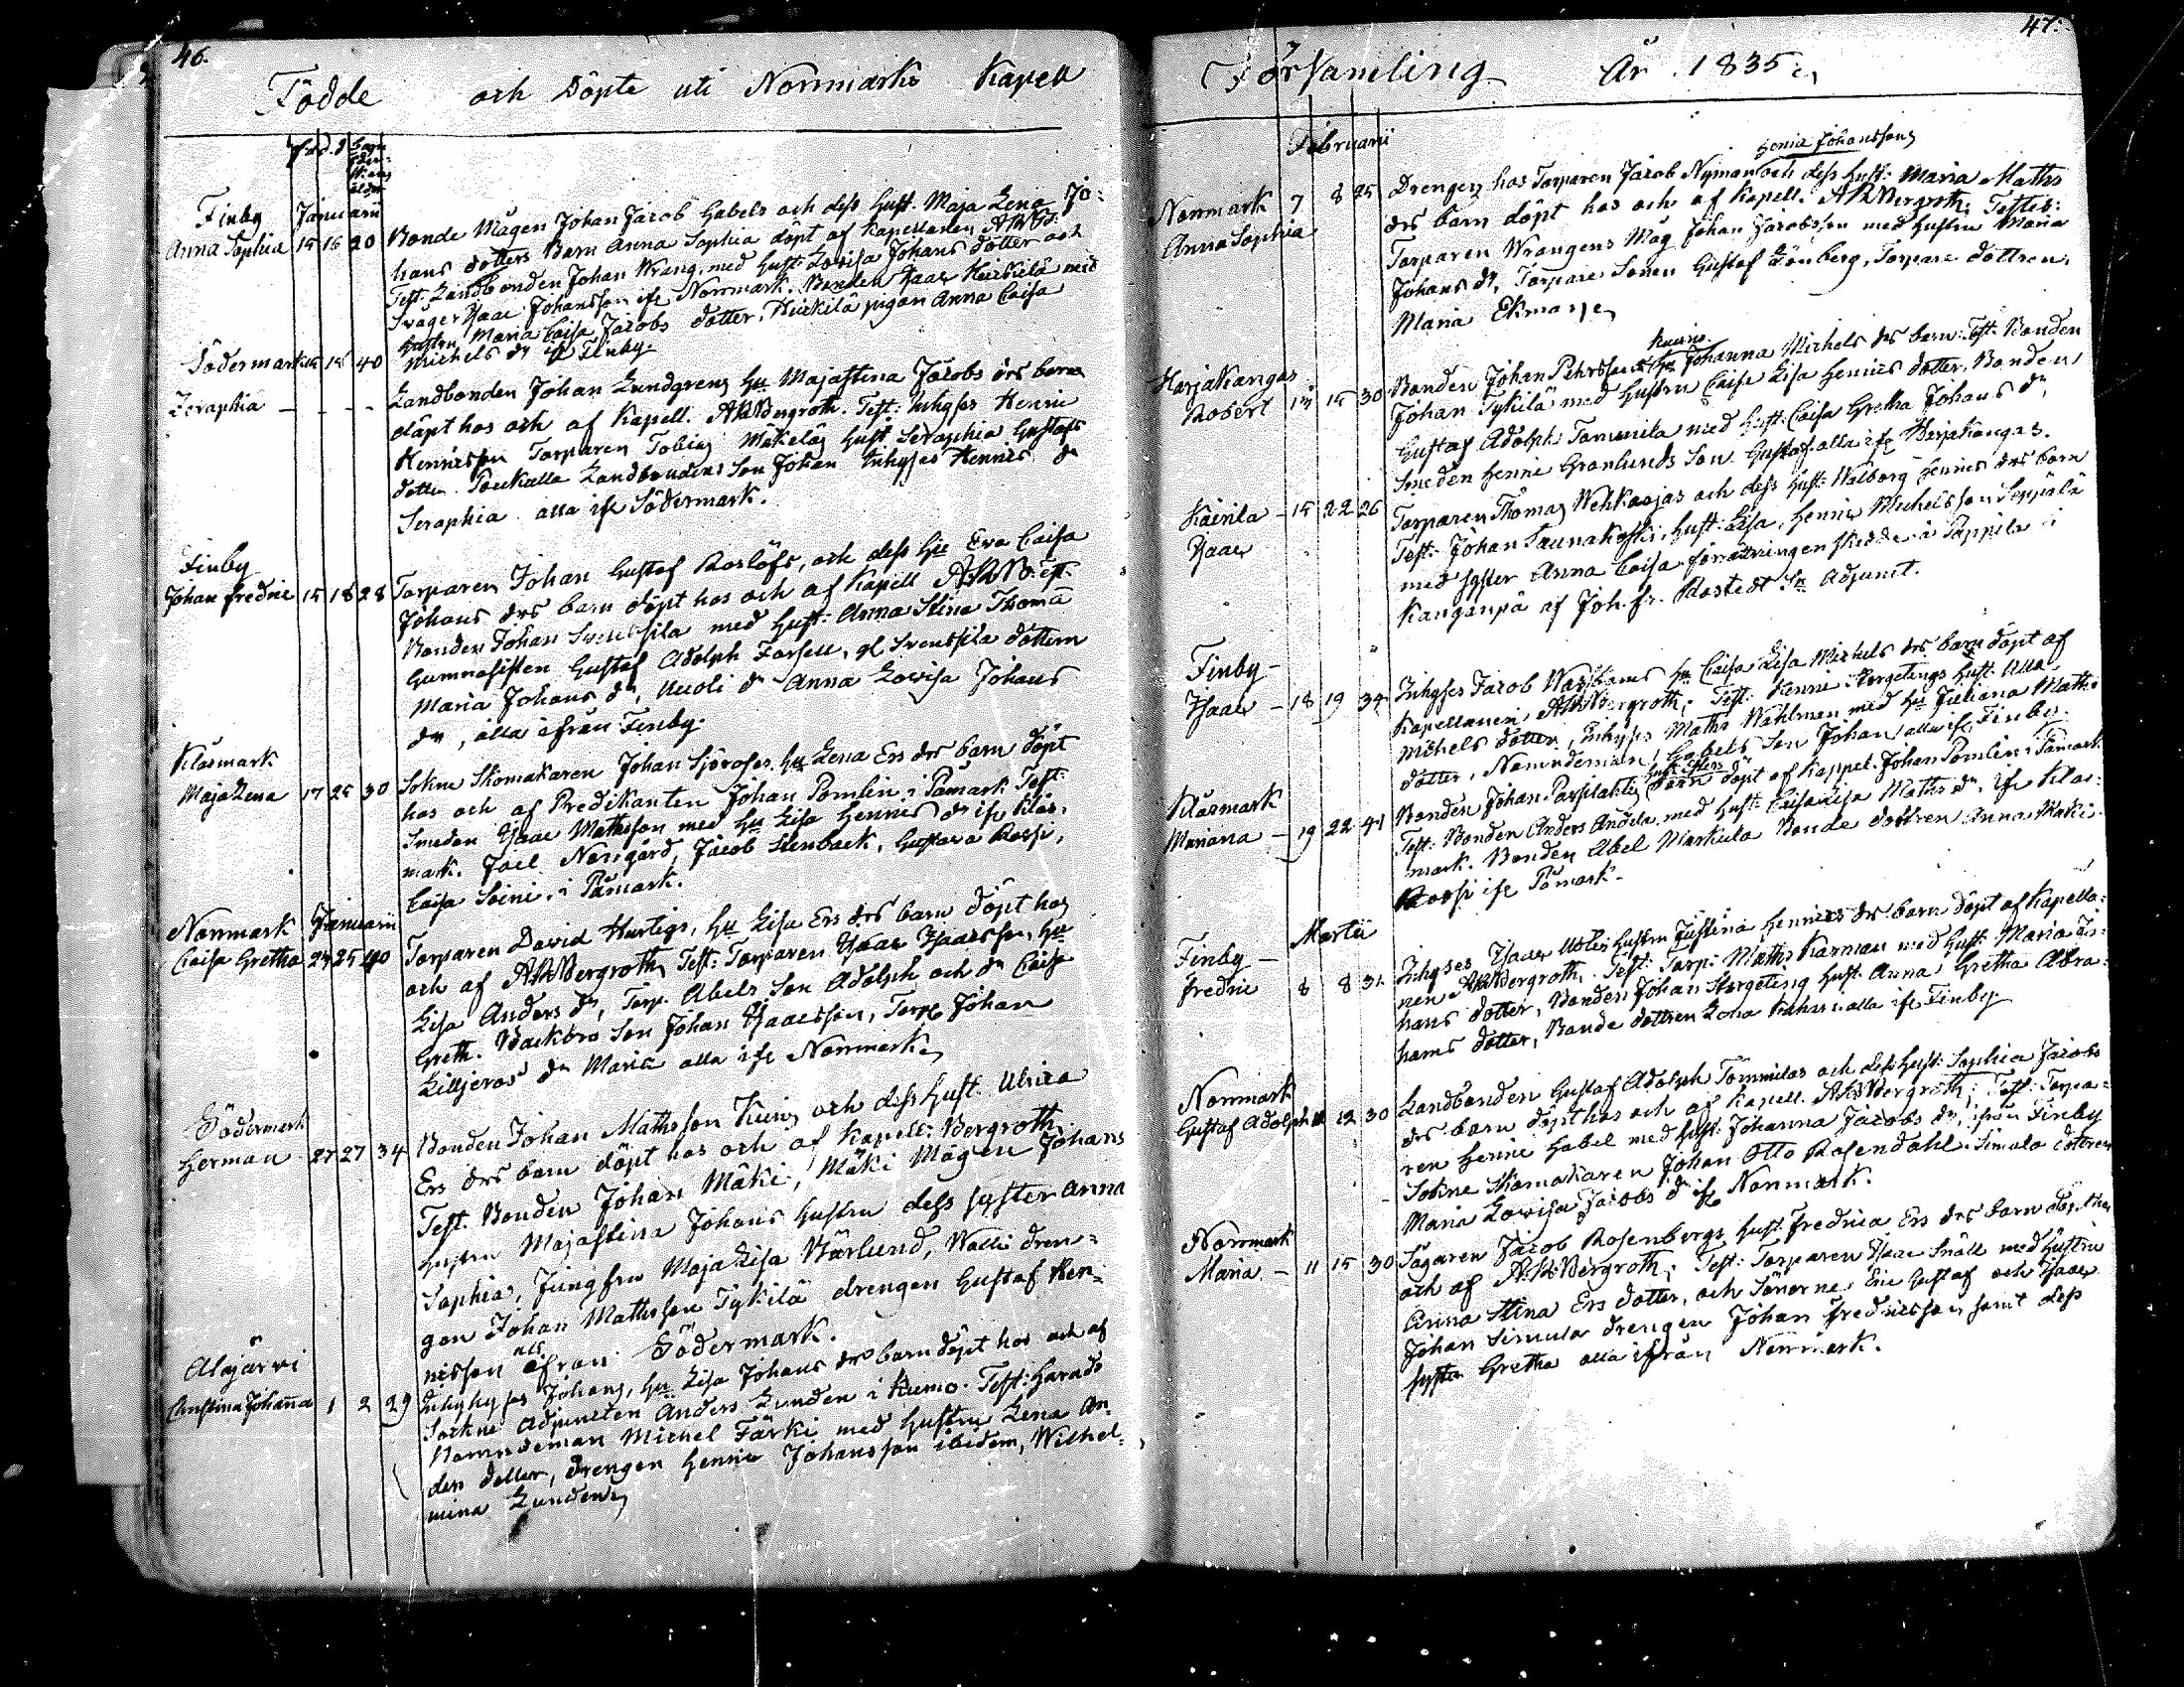 46.
Födde och Döpte uti Norrmarks Kapell
föd. d. barn
Finby Januarii
Anna Sophia 15 16 20 Bonde Mågen Johan Jacob Gabels och dess Hust. Maja Lena Jo:
hans dotters Barn Anna Sophia döpt af Kapellanen
Test. Landbonden Johan Wrang, med Hust: Lovisa Johans dotter och
Svåger Isaac Johansson ifr Norrmark. Bonden Isaac Heickilä med
Hustru Maria Caisa Jacobs dotter, Heickilä pigan Anna Caisa
Michels dr ifr Finby.
Södermark 15 40
Zeraphia - - - Landbonden Johan Lundgrens Hu Majastina Jacobs drs barn
döpt hos och af Kapell. AWBergroth. Test: Inhyses Henric
Henricsson Torparen Tobias Mäkeläs Hust. Seraphia Gustafs
dotter. Landbondens Son Johan Inhyses Henrics dr
Seraphia alla ifr Södermark.
Finby
Johan Fredric 15 18 28 Torparen Johan Gustaf Roslöfs, och dess Hu Eva Caisa
Johans drs barn döpt hos och af Kapell Test.
Bonden Johan Svensila med Hust: Anna Stina Thomæ
Gumnasisten Gustaf Adolph Forsell, gl Svensila dottern
Maria Johans dr, Uuoli dr Anna Lovisa Johans
dr, alla ifrån Finby.
Klåsmark
Maja Lena 17 25 30 Sokne Skomakaren Johan Sjöroses Hu Lena Ers drs barn döpt
hos och af Predikanten Johan Pomlin i Påmark Test:
Smeden Isaac Mathsson med Hu Lisa Henrics dr ifr Klås:
mark. Joel Norrgård, Jacob Stenback, Gustava
Caisa Soini, i Påmark.
Norrmark Januarii
Caisa Gretha 24 25 40 Torparen David Hurtigs, Hu Lisa Ers drs barn döpt hos
och af AWBergroth, Test: Torparen Isaac Isacsson, Hu
Lisa Anders dr, Torp. Abels Son Adolph och dr Caisa
Greth. Backbro Son Johan Isacsson, Torp Johan
Liljeros dr Maria alla ifr Norrmark.
Södermark
Herman 27 27 34 Bonden Johan Mathsson och dess Hust. Ulrica
Ers drs barn döpt hos och af Kapell: Bergroth.
Test. Bonden Johan Mäki, Mäki Mågen Johans
hustru Majastina Johans hustru dess syster Anna
Sophia, Jungfru Maja Lisa Bärlund, Walli dren=
gen Johan Mathsson Tykilä drengen Gustaf Hen:
ricsson alla ifrån Södermark.
Alajärvi
Christina Johana 1 2 29 Inhyses Johans, Hu Lisa Johans drs barn döpt hos och af
Sockne Adjuncten Anders Lunden i Kumo. Test: Harads
Namndeman Michel Tärki med Hustru Lena An:
ders dotter, drengen Henric Johansson ibidem, Wilhel=
mina Lunden
47.
Församling År 1835
Februarii
Henric Johanssons
Norrmark 7 8 25 Drengen hos Torparen Jacob Nyman och dess Hust: Maria Maths
Anna Sophia drs barn döpt hos och af Kapell. AWBergroth; Testes:
Torparen Wrangens Måg Johan Jacobsson med hustru Maria
Johans dr, Torpare Sonen Gustaf Lönberg, Torpare dottren
Maria Ekman
Harjakangas Bonden Johan Pehrssons Hu Johanna Michels drs barn: Test. Bonden
Robert 15 30 Johan Tykilä med hustru Caisa Lisa Henrics dotter, Bonden
Gustaf Adolph Tommila med Hust. Caisa Gretha Johans dr,
Smeden Henric Granlunds Son Gustaf alla ifr Harjakangas.
Kairila - 15 22 26 Torparen Thomas Wehkaojas och dess Hust: Walborg Henrics drs barn
Isaac Test: Johan Saunakoski, Hust: Lisa, Henric Michelsson Seppälä
med syster Anna Caisa förrättningen skedde i Pappila i
Kangånpä af Joh. Fr. Rostedt Sn Adjunct.
Finby -
Isaac - 18 19 34 Inhyses Jacob Hu Caisa Lisa Michels drs barn döpt af
Kapellanen AWBergroth; Test: Henric Storgetings Hust. Ulla
Michels dotter, Inhyses Maths Wahlman med Hu Juliana Maths
dotter, Namndeman Gabels Son Johan alla ifr Finby.
Klåsmark Bonden Johan barn döpt af Kappel. Johan Pomlin i Påmark
Mariana - 19 22 41 Test: Bonden Anders Andila med Hust: Caisa Lisa Maths dr. ifr Klås:
mark. Bonden Abel Markula Bonde dottren Anna
ifr Påmark.
Martii
Finby - Inhyses Isaac Hustru Justina Henrics drs barn döpt af Kapella:
Fredric 8 8 31 nen AWBergroth, Test: Torp: Maths Karman med Hust. Maria Jo:
hans dotter, Bonden Johan Storgeting Hust: Anna Gretha Abra:
hams dotter, Bonde dottren Lena alla ifr Finby
Norrmark Landbonden Gustaf Adolph Tommilas och dess Hust: Sophia Jacobs
Gustaf Adolph 12 30 drs barn döpt hos och af Kapell. AWBergroth; Test: Torpa=
ren Henric Gabel med Hust: Johanna Jacobs dr, ifrån Finby
Sokne Skomakaren Johan Otto Rosendahl. Simula dottren
Maria Lovisa Jacobs dr ifr Norrmark.
Norrmark
Maria - 11 15 30 Sågaren Jacob Rosenbergs Hust. Fredrica Ers drs barn döpt hos
och af AWBergroth; Test: Torparen Isaac Snäll med hustru
Anna Stina Ers dotter, och Sönerne Eric Gustaf och Isaac
Johan Simula drengen Johan Fredricsson samt dess
syster Gretha alla ifrån Norrmark.